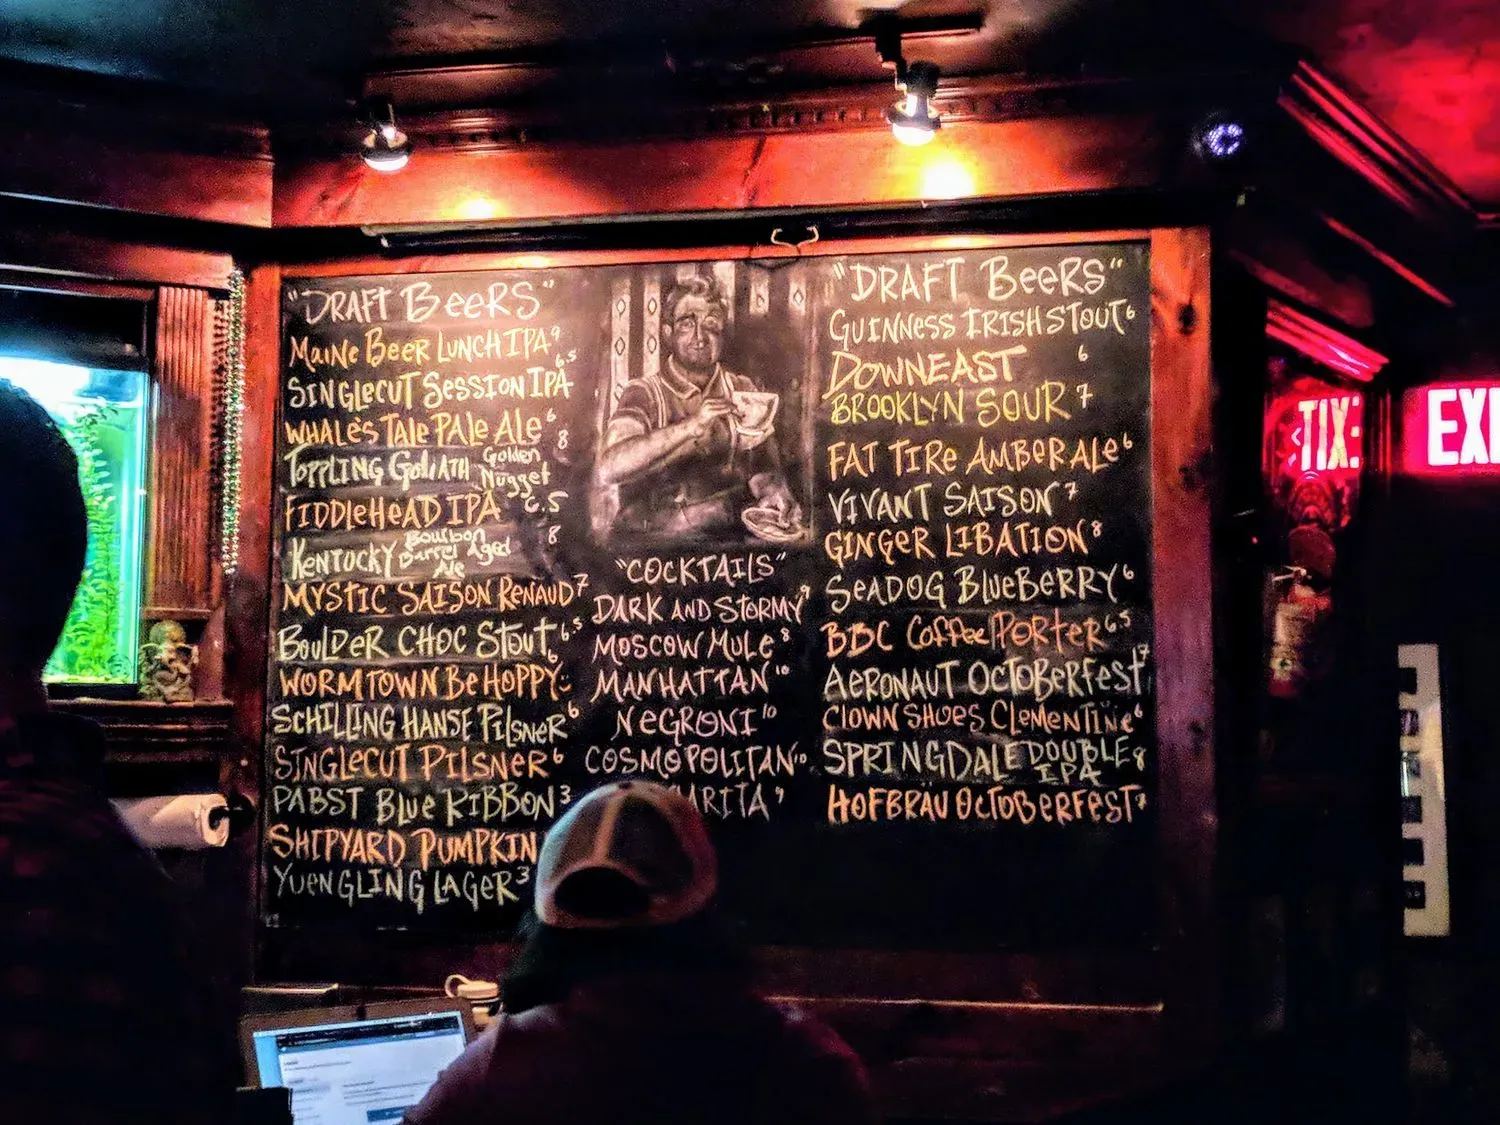 "DRAFT BEERS"
MAINE BEER LUNCH IPA 9
SINGLECUT SESSION IPA 6.5
WHALE'S TALE PALE ALE 6
TOPPLING GOLIATH Golden Nugget 8
FIDDLEHEAD IPA 6.5
KENTOCKY Bourbon Barrel Aged Ale 8
MYSTIC SAISON RENAUD 7
BOULDER CHOC STOUT 6.5
WORMTOWN BE HOPPY 6
SCHILLING HANSE PILSNER 6
SINGLECUT PILSNER 6
PABST BLUE RIBBON 3
SHIPYARD PUMPKIN
YUENGLING LAGER 3
"COCKTAILS"
DARK AND STORMY 9
MOSCOW MULE 8
MANHATTAN 10
NEGRONI 10
COSMOPOLITAN 10
ARITA 9
"DRAFT BEERS"
GUINNESS IRISH STOUT 6
DOWNEAST 6
BROOKLYN SOUR 7
FAT TIRE AMBER ALE 6
VIVANT SAISON 7
GINGER LIBATION 8
SEADOG BLUEBERRY 6
BBC COFFEE PORTER 6.5
AERONAUT OCTOBERFEST 7
CLOWN SHOES CLEMENTINE 6
SPRINGDALE DOUBLE IPA 8
HOFBRAU OCTOBERFEST 7
EXI